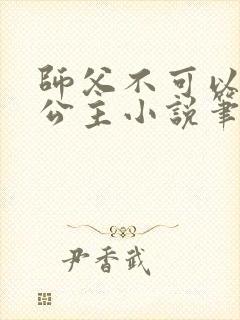 師父不可以
公主小說筆
尹香武